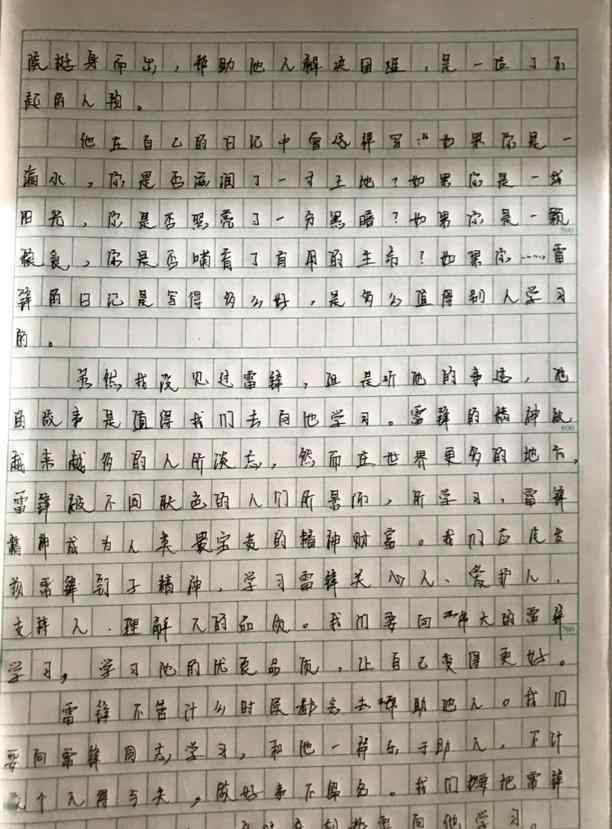 候挺身而出，帮助他人解决困难，是一位了不
起的人物。
他在自己的日记中曾这样写："如果你是一
滴水，你是否滋润了一寸土地？如果你是一线
阳光，你是否照亮了一分黑暗？如果你是一颗
粮食，你是否哺育了有用的生命？如果你……雷
锋的日记是写得多么好，是多么值得别人学习
的。
虽然我没见过雷锋，但是听他的事迹，他
的故事是值得我们去向他学习。雷锋的精神被
越来越多的人所谈志，然而在世界更多的地方，
雷锋被不同肤色的人们所景仰，所学习，雷锋
精神成为人类最宝贵的精神财富。我们应
雷锋钉子精神，学习雷锋关心人、爱护人、
支持人、理解人的品质。我们要向伟大的雷锋
学习，学习他的优良品质，让自己变得更好。
雷锋不管什么时候都会去帮助他人。我们
要向雷锋同志学习，和他一样乐于助人，不计
个人得与失，做好事不留名。我们把雷锋
向他学习。